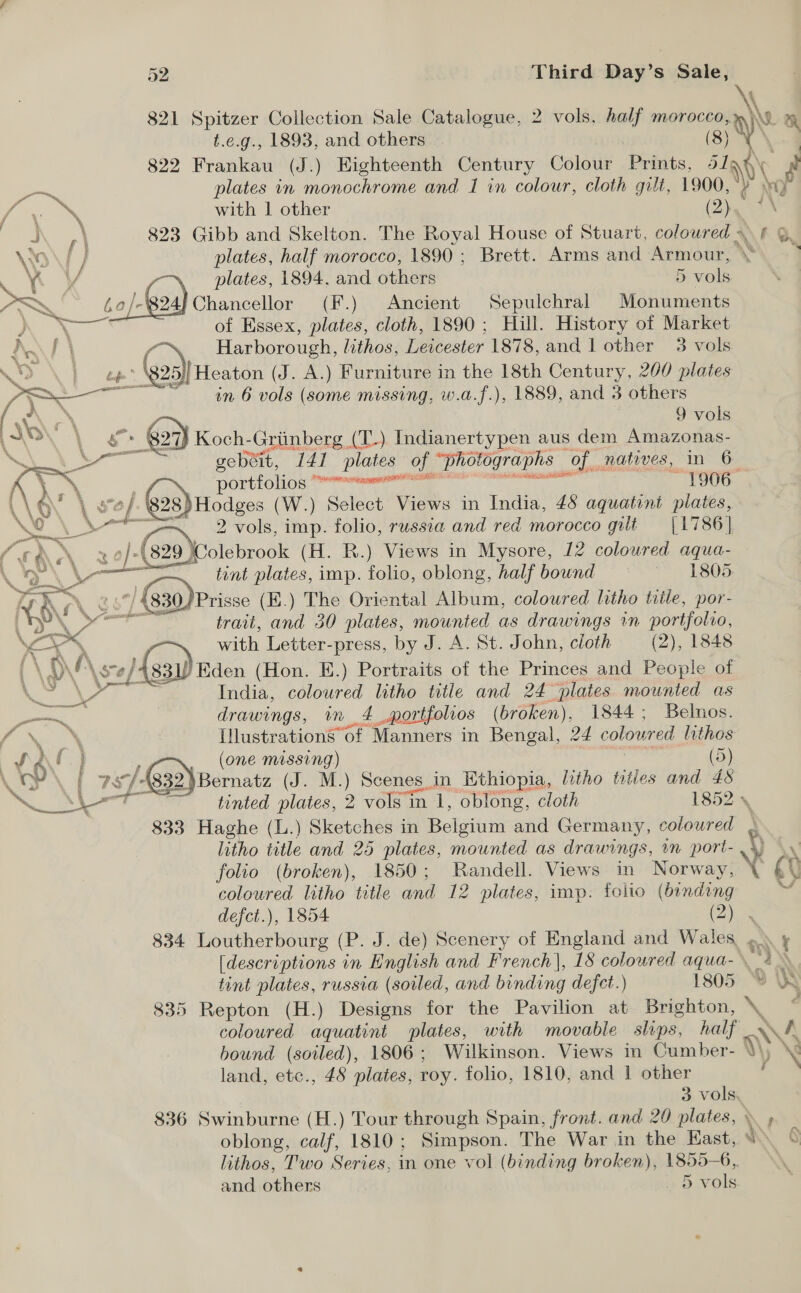 52 Third Day's Sale,
821 Spitzer Collection Sale Catalogue, 2 vols, half morocco,
t.e.g., 1893, and others (8)
822 Frankau (J.) Eighteenth Century Colour Prints, 51
plates in monochrome and 1 in colour, cloth gilt, 1900,
with 1 other (2)
823 Gibb and Skelton. The Royal House of Stuart, coloured
plates, half morocco, 1890; Brett. Arms and Armour,
plates, 1894, and others 5 vols
824 Chancellor (F.) Ancient Sepulchral Monuments
of Essex, plates, cloth, 1890; Hill. History of Market
Harborough, lithos, Leicester 1878, and 1 other 3 vols
825 Heaton (J. A.) Furniture in the 18th Century, 200 plates
in 6 vols (some missing, w.a.f.), 1889, and 3 others
9 vols
827 Koch-Grünberg (T.) Indianertypen aus dem Amazonas-
gebeit, 141 plates of photographs of natives, in 6
portfolios 1906
828 Hodges (W.) Select Views in India, 48 aquatint plates,
2 vols, imp. folio, russia and red morocco gilt [1786]
829 Colebrook (H. R.) Views in Mysore, 12 coloured aqua-
tint plates, imp. folio, oblong, half bound 1805
830 Prisse (E.) The Oriental Album, coloured litho title, por-
trait, and 30 plates, mounted as drawings in portfolio,
with Letter-press, by J. A. St. John, cloth (2), 1848
831 Eden (Hon. E.) Portraits of the Princes and People of
India, coloured litho title and 24 plates mounted as
drawings, in 4 portfolios (broken), 1844; Belnos.
Illustrations of Manners in Bengal, 24 coloured lithos
(one missing) (5)
75/- 832 Bernatz (J. M.) Scenes in Ethiopia, litho titles and 48
tinted plates, 2 vols in 1, oblong, cloth 1852
833 Haghe (L.) Sketches in Belgium and Germany, coloured
litho title and 25 plates, mounted as drawings, in port-
folio (broken), 1850; Randell. Views in Norway,
coloured litho title and 12 plates, imp. folio (binding
defct.), 1854 (2)
834 Loutherbourg (P. J. de) Scenery of England and Wales
[descriptions in English and French], 18 coloured aqua-
tint plates, russia (soiled, and binding defct.) 1805
835 Repton (H.) Designs for the Pavilion at Brighton,
coloured aquatint plates, with movable slips, half
bound (soiled), 1806; Wilkinson. Views in Cumber-
land, etc., 48 plates, roy. folio, 1810, and 1 other
3 vols
836 Swinburne (H.) Tour through Spain, front. and 20 plates,
oblong, calf, 1810; Simpson. The War in the East,
lithos, Two Series, in one vol (binding broken), 1855–6,
and others 5 vols